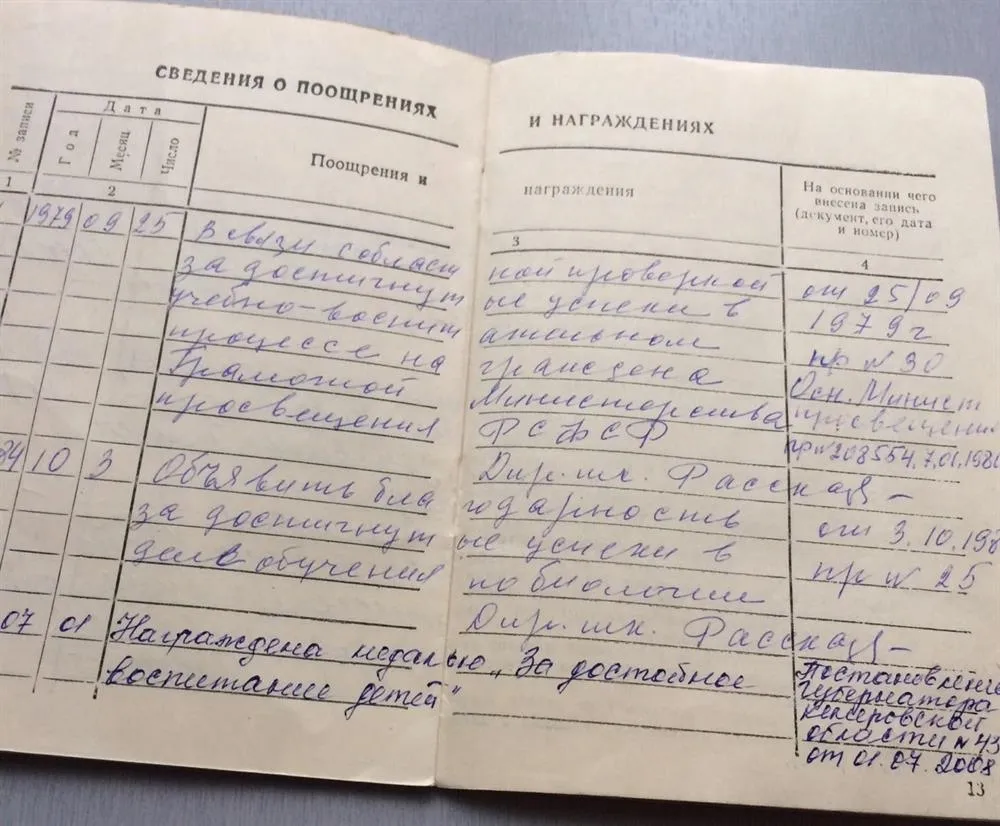 СВЕДЕНИЯ О ПООЩРЕНИЯХ И НАГРАЖДЕНИЯХ
№ записи
Дата
Год Месяц Число
Поощрения и награждения
На основании чего
внесена запись
(документ, его дата
и номер)
1 2 3 4
1979 09 25 В связи с област ной проверкой от 25/09
за достигнут ые успехи в 1979 г
учебно-воспит ательном пр № 30
процессе на граждена Осн. Минист
Грамотой Министерства просвещения
просвещения РСФСР пр № 208554, 7.01.198
Дир. шк.
84 10 3 Объявить бла годарность от 3.10.198
за достигнут ые успехи в пр № 25
обучения по биологии
Дир. шк.
07 01 Награждена медалью „За достойное
воспитание детей"
Постановление
губернатора
Кемеровской
области № 43
от 01.07.2008
13